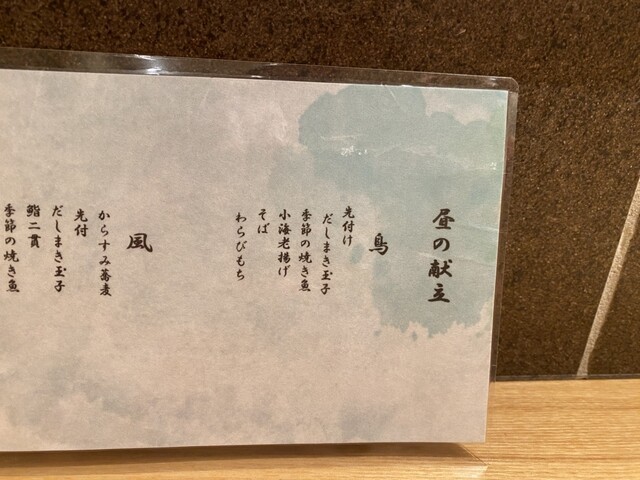 昼の献立
鳥
先付け
だしまき玉子
季節の焼き魚
小海老揚げ
そば
わらびもち
風
からすみ蕎麦
先付
だしまき玉子
鮨二貫
季節の焼き魚